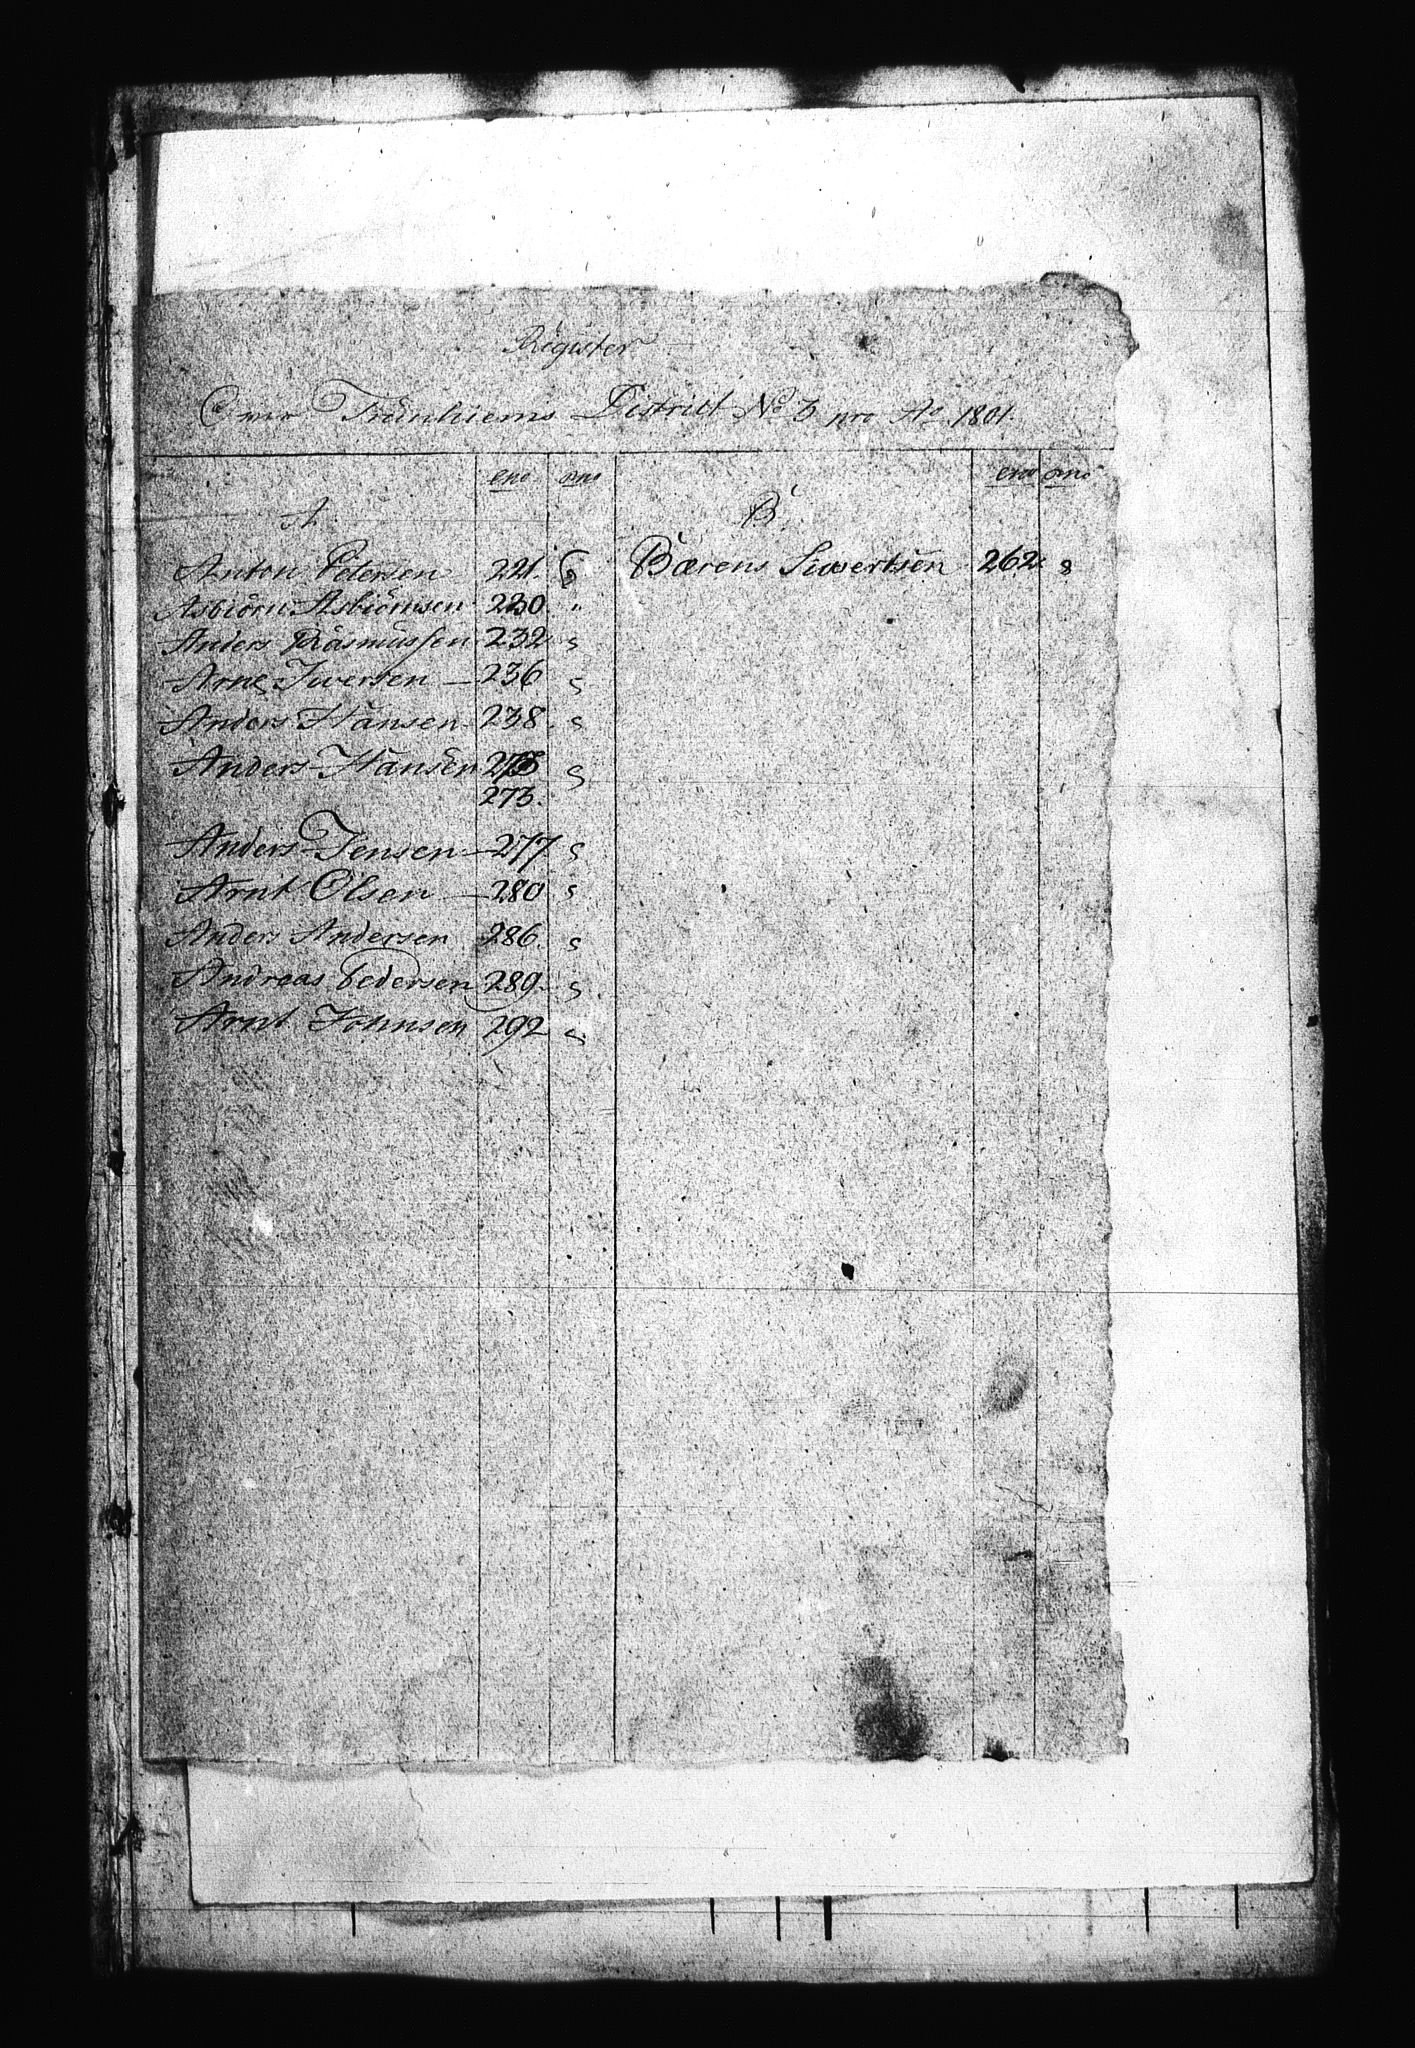 Register
Over Trönhiems District No 3 pro Ao 1801.
eno ono
A
Anton Petersen 221.
Asbiörn Asbiörnsen 230. "
Anders Rasmussen 232 s
Arne Iwersen — 236 s
Anders Hansen 238. s
Anders Hansen s
273.
Anders Jensen — 277 s
Arnt Olsen — 280 s
Anders Andersen 286 s
Andreas Pedersen 289. s
Arnt Johnsen 292
eno ono
B
Bærens Siwertsen 262. 8